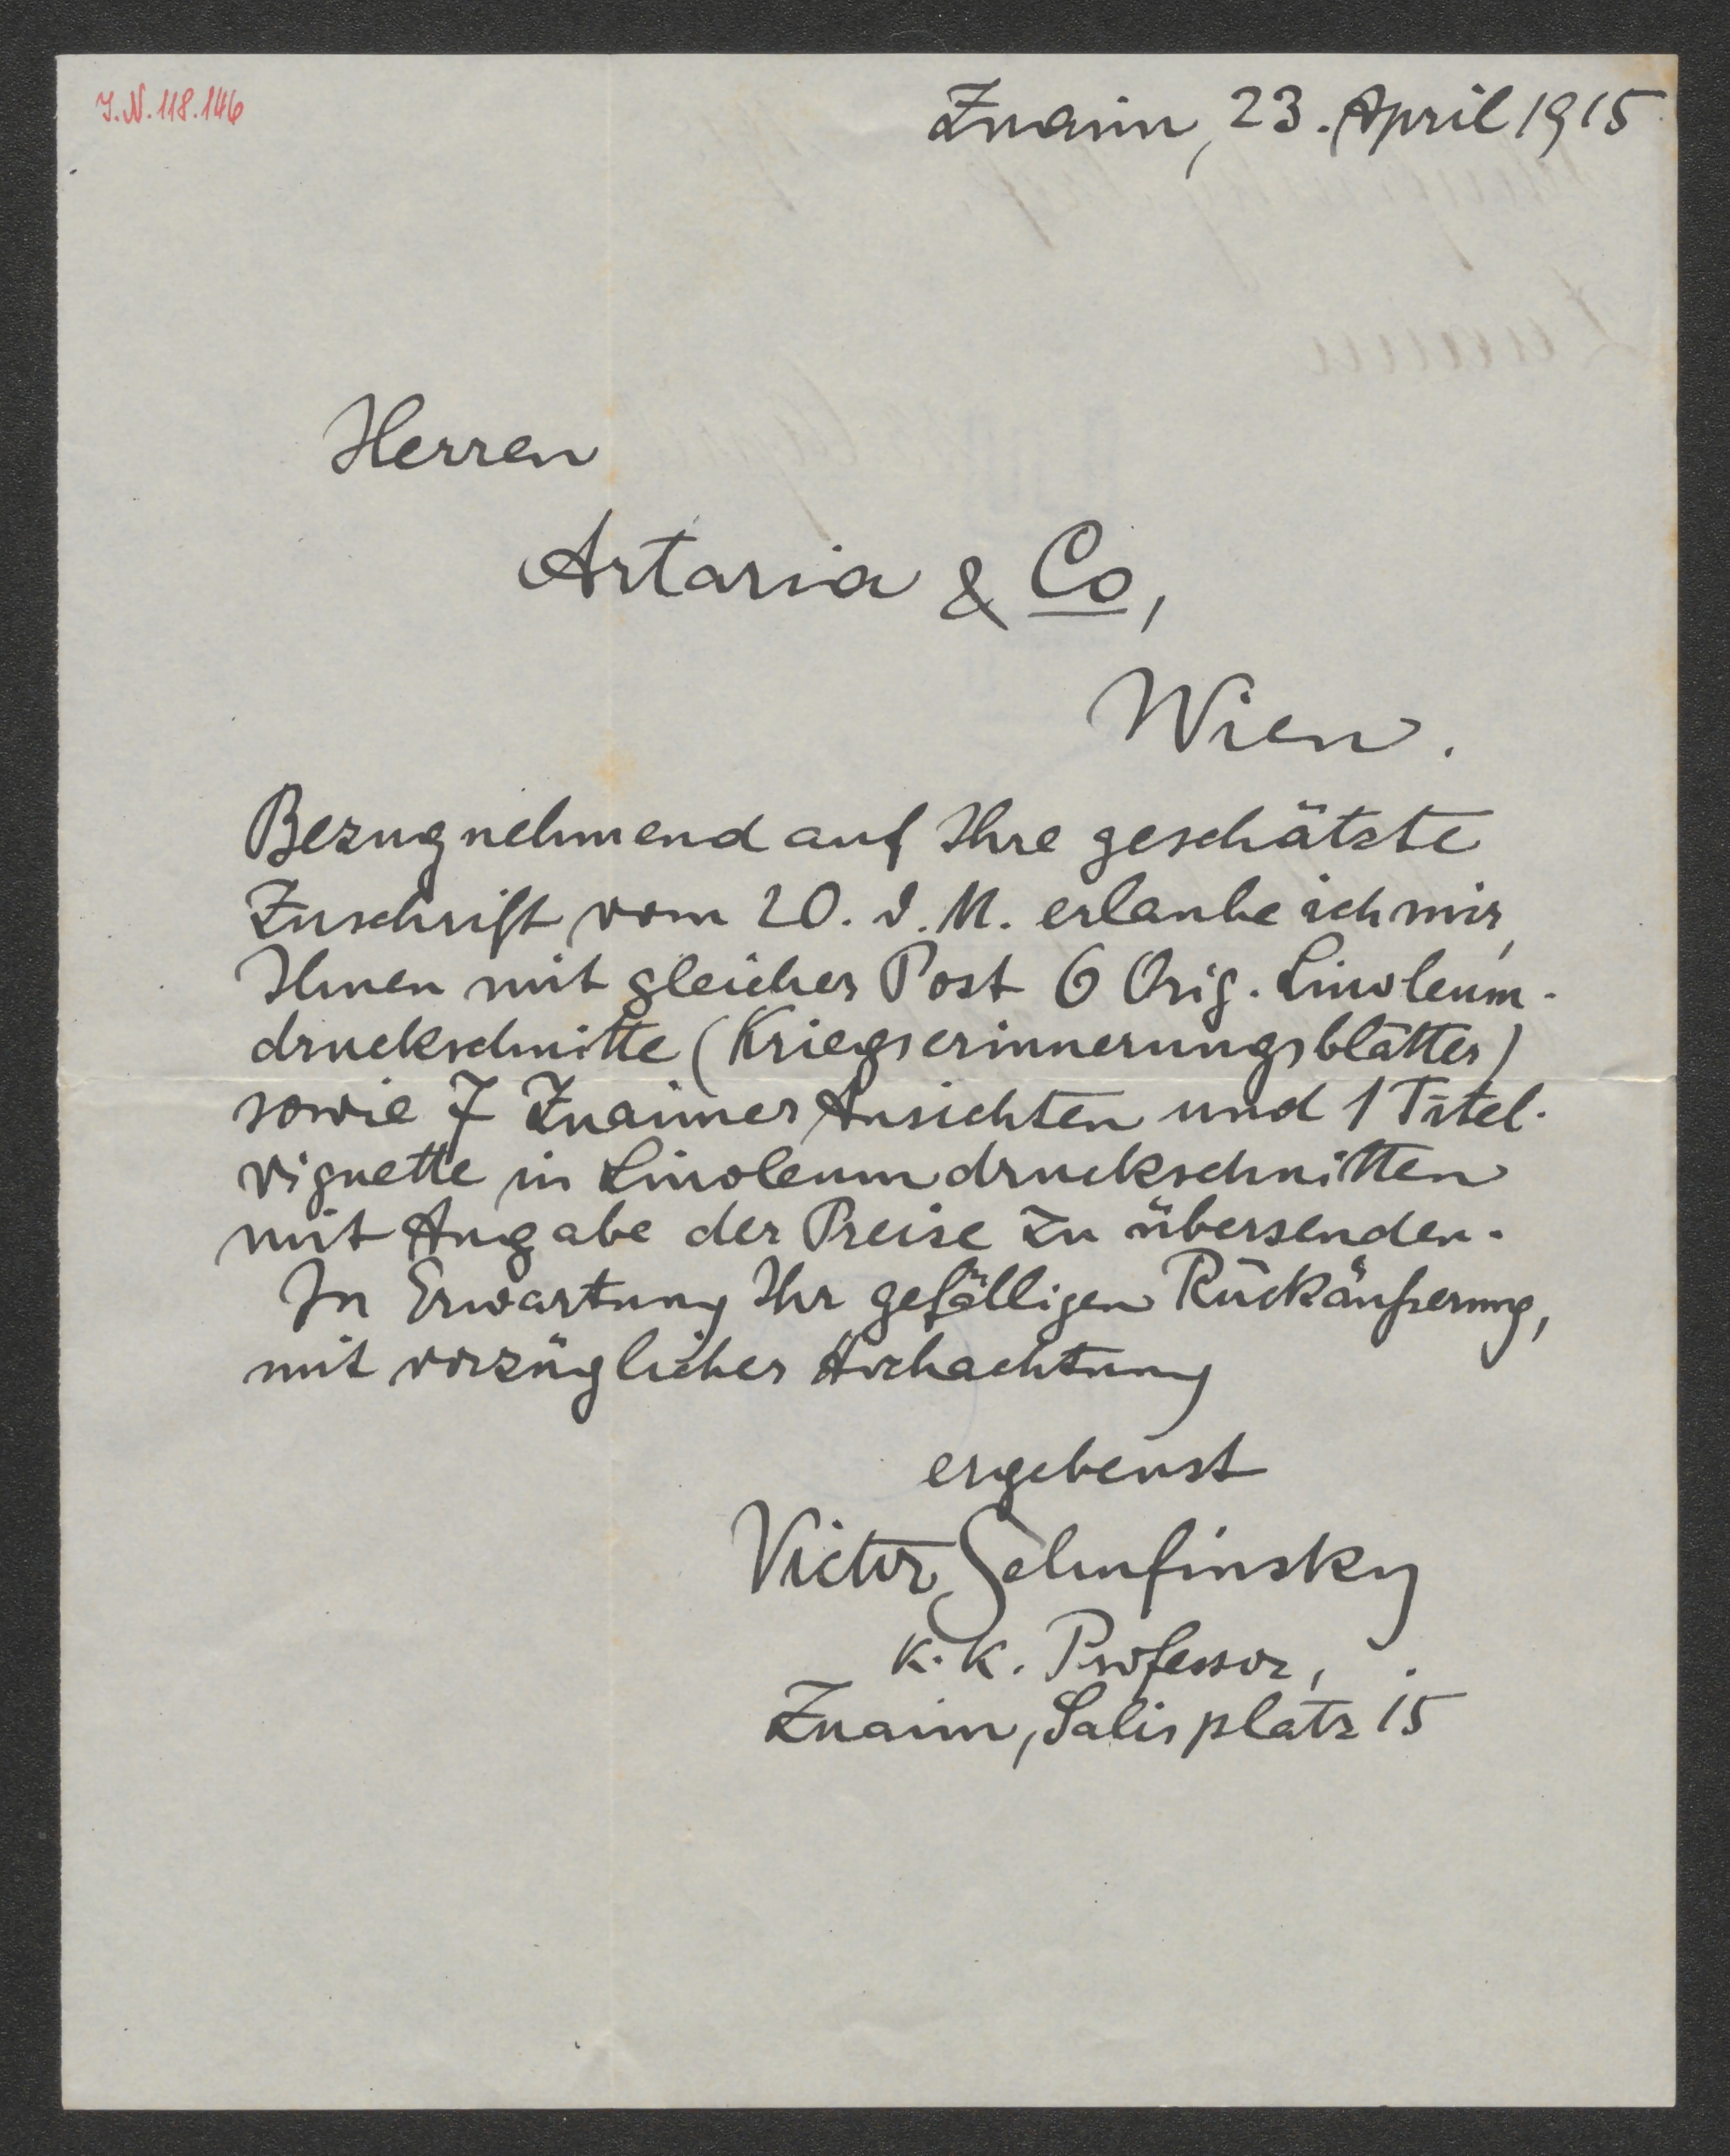 J.N. 118.146
Znaim, 23. April 1915
Herren
Artaria & Co,
Wien.
Bezugnehmend auf Ihre geschätzte
Zuschrift vom 20. d. M. erlaube ich mir,
Ihnen mit gleicher Post 6 Orig. Linoleum-
druckschnitte (Kriegserinnerungsblätter)
sowie 7 Znaimer Ansichten und 1 Titel-
vignette in Linoleumdruckschnitten
mit Angabe der Preise zu übersenden.
In Erwartung Ihr gefälligen Rückäußerung,
mit vorzüglicher Hochachtung
ergebenst
Victor Schufinsky
k. k. Professor,
Znaim, Salisplatz 15